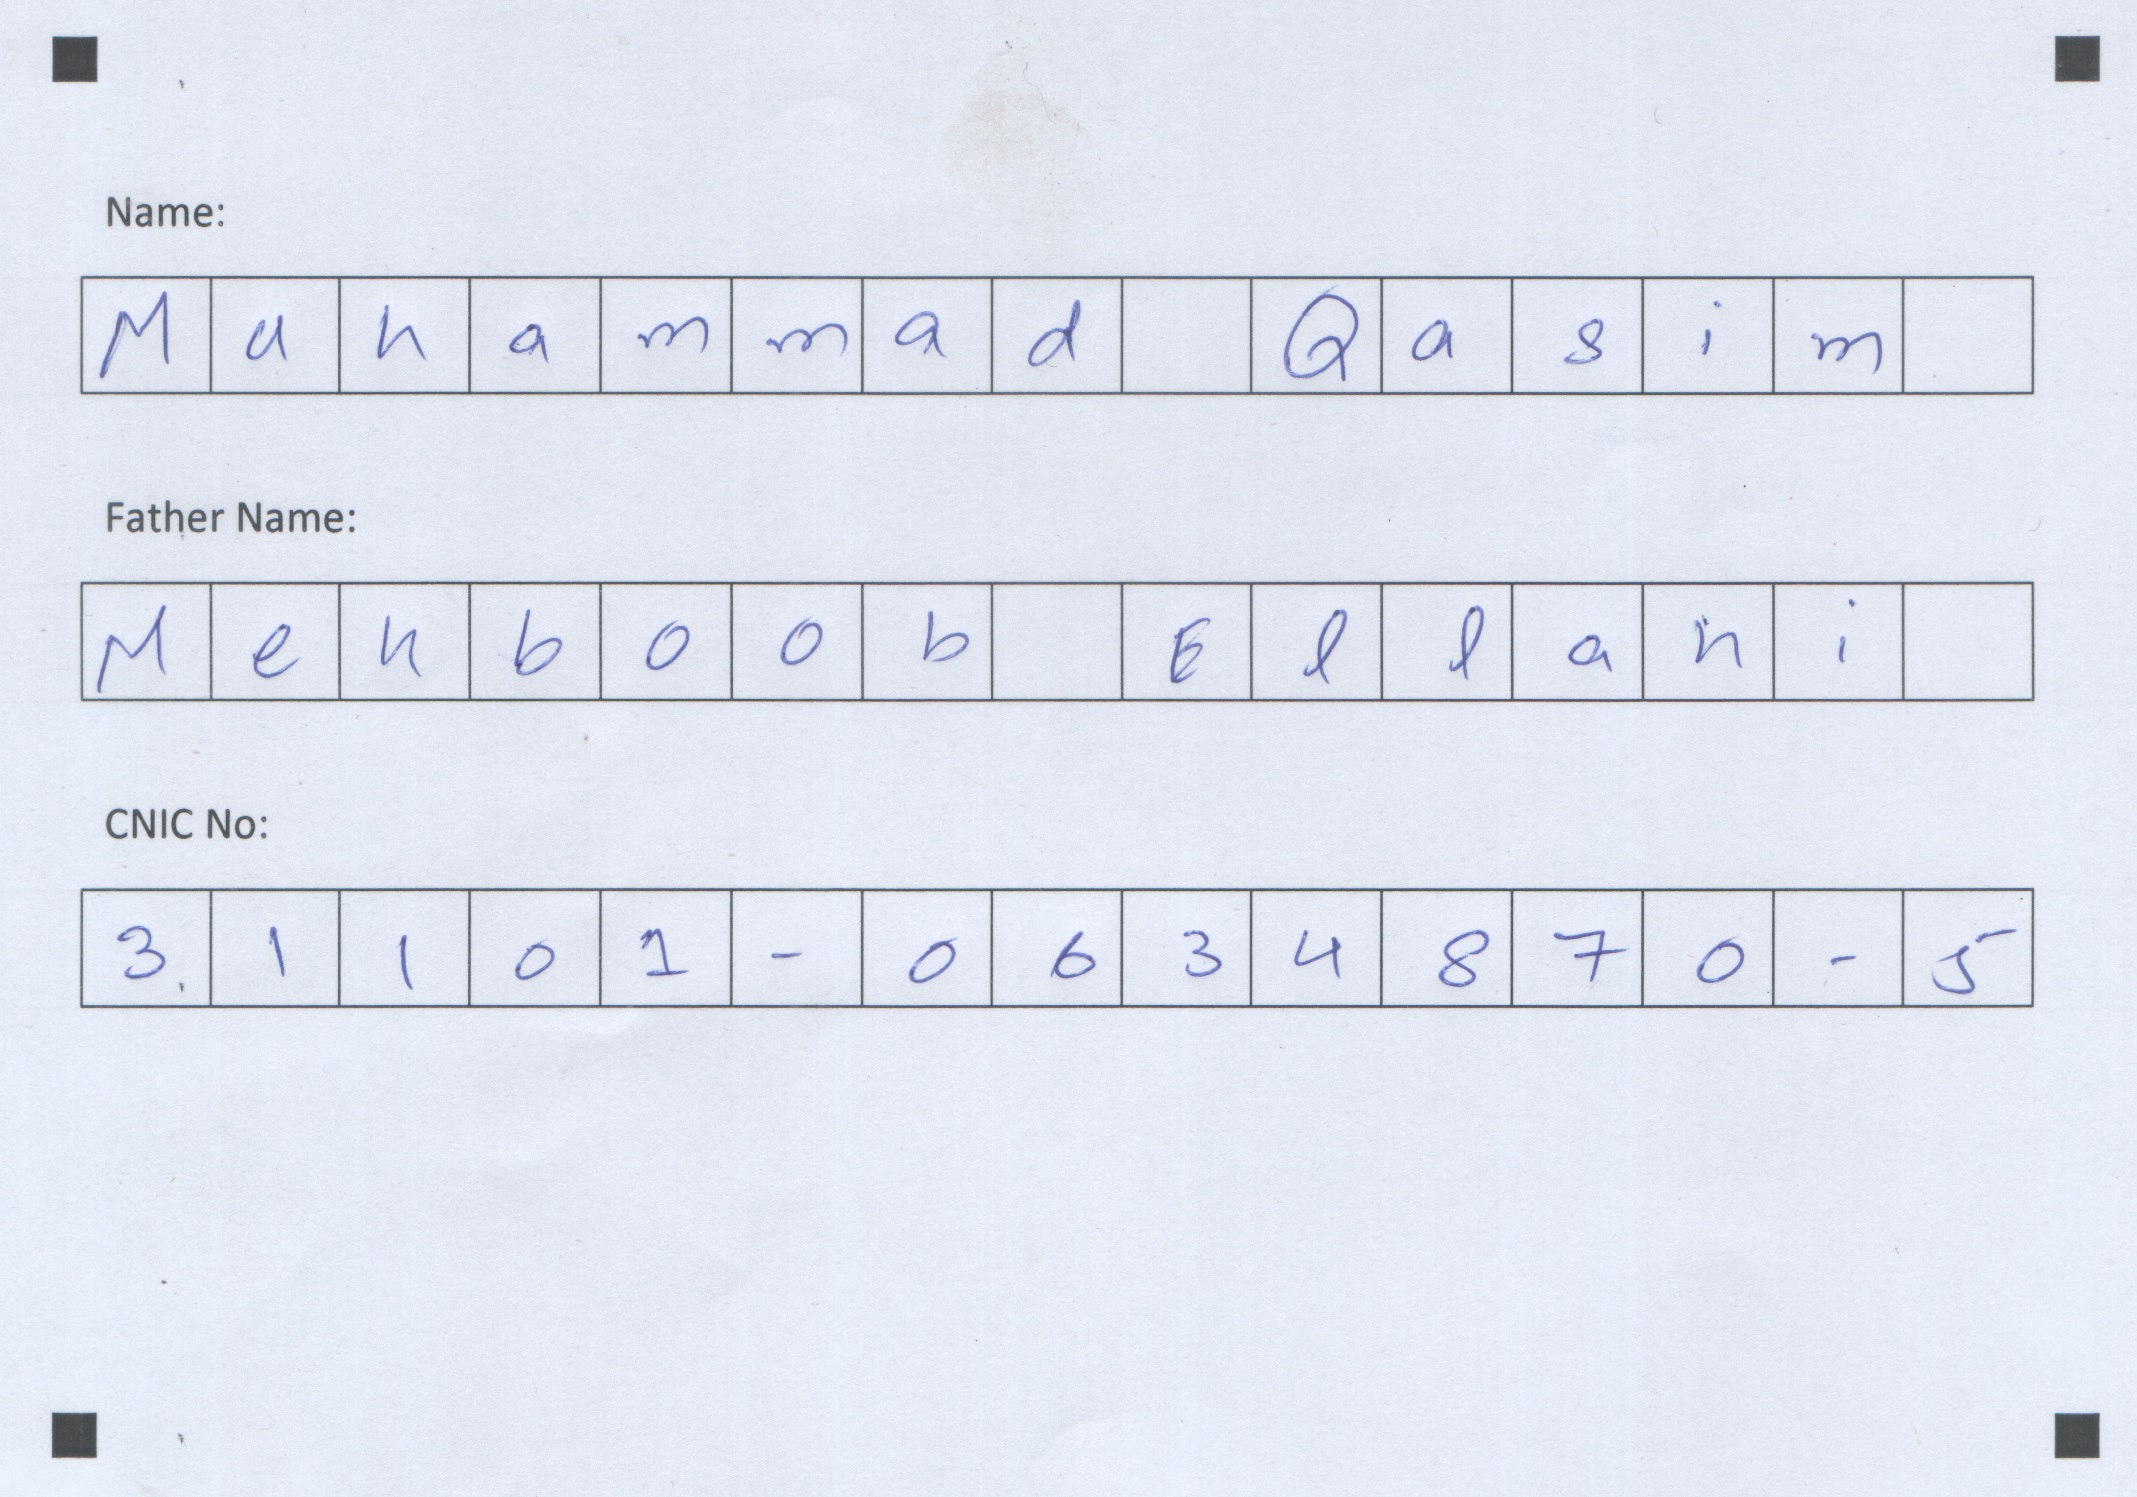 Name:
Muhammad Qasim
Father Name:
Mehboob Ellahi
CNIC No:
31101-0634870-5